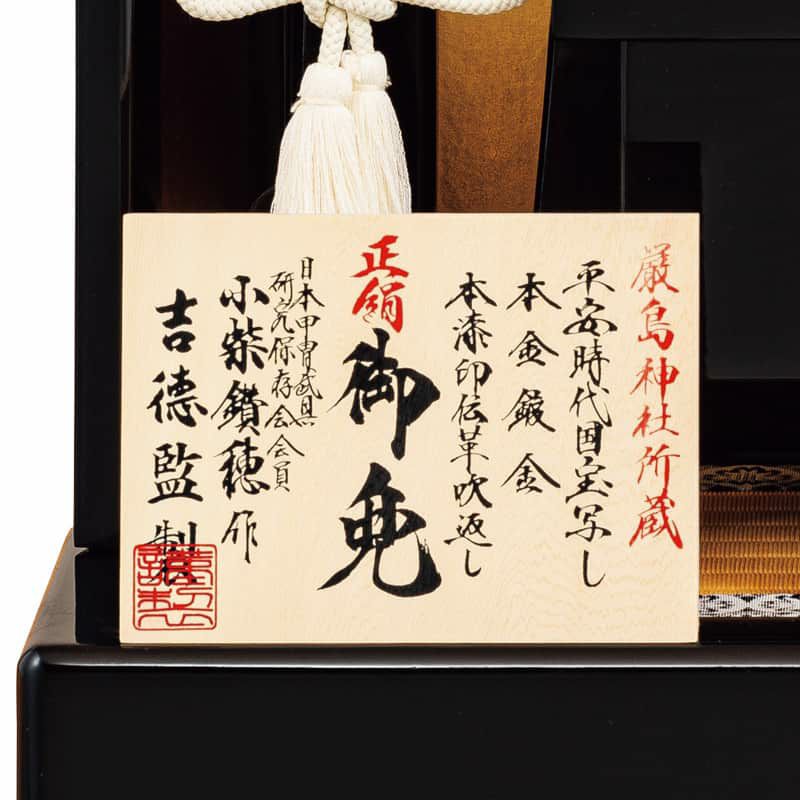 厳島神社所蔵
平安時代国宝写し
本金鍍金
本漆印伝革吹返し
正絹
御免
日本甲冑武具
研究保存会会員
小柴鑚穂作
吉徳監製